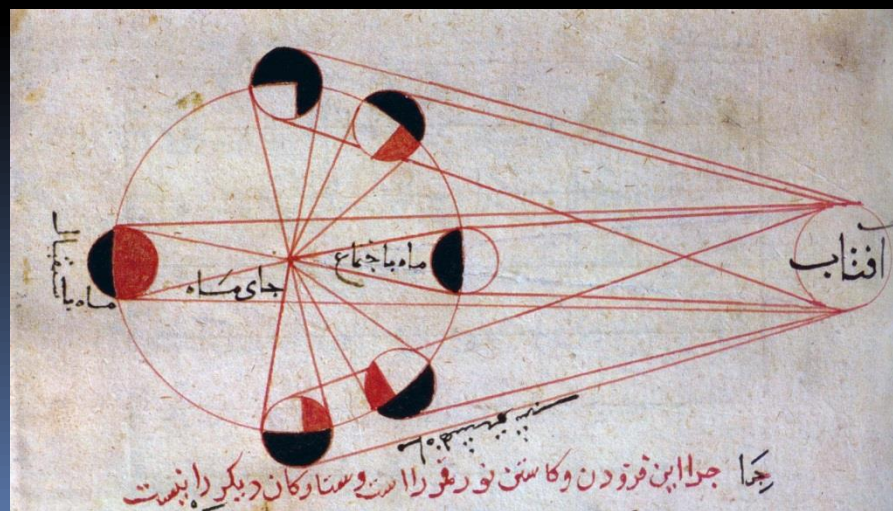 افتاب
ماه باجتماع
جای ماه
ماه باستقبال
چرا جرا این فزودن وکاستن نور قمر را است وستارکان دیکر را نیست